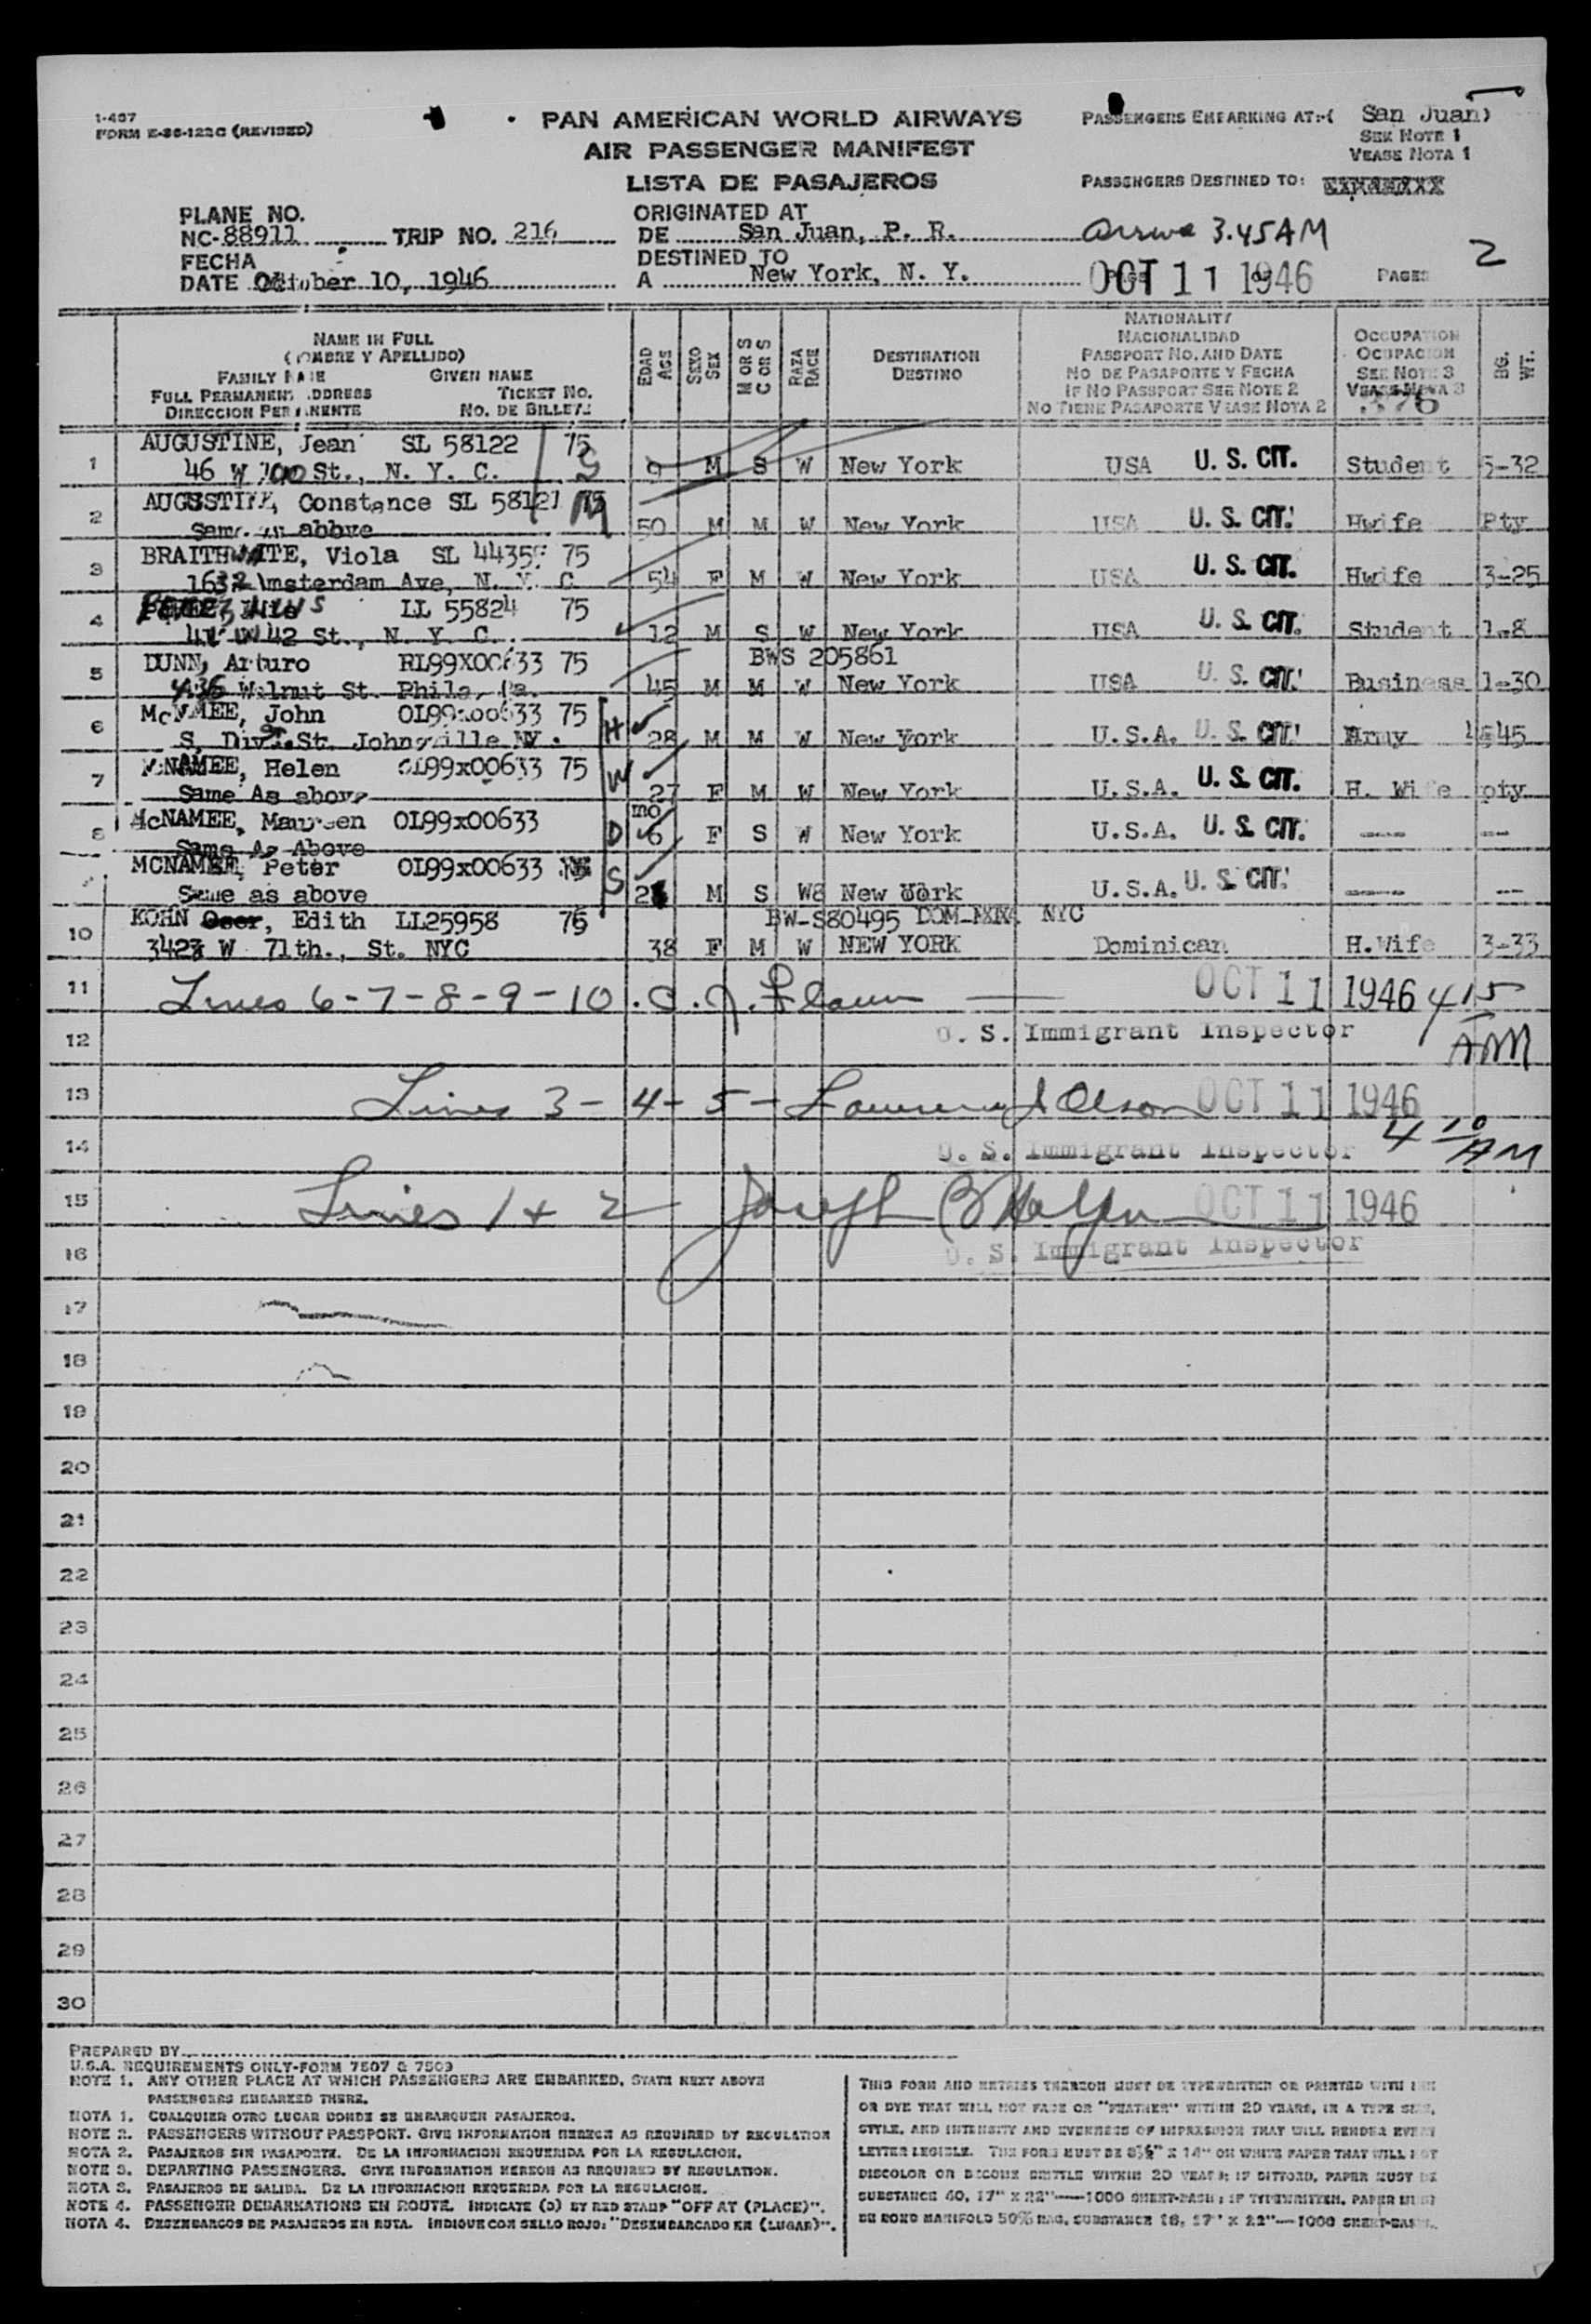 1-407
FORM E-36-122C (REVISED)
PAN AMERICAN WORLD AIRWAYS
AIR PASSENGER MANIFEST
LISTA DE PASAJEROS
PASSENGERS EMBARKING AT:-( San Juan)
SEE NOTE 1
VEASE NOTA 1
PASSENGERS DESTINED TO:
PLANE NO.
NC-88911 TRIP NO. 216
FECHA
DATE October 10, 1946
ORIGINATED AT
DE San Juan, P. R.
DESTINED TO
A New York, N. Y.
Arrive 3.45AM
OCT 11 1946 PAGES 2
NAME IN FULL
(NOMBRE Y APELLIDO)
FAMILY NAME GIVEN NAME
FULL PERMANENT ADDRESS TICKET NO.
DIRECCION PERMANENTE NO. DE BILLETE
EDAD AGE
SEXO SEX
M OR S C OR S
RAZA RACE
DESTINATION
DESTINO
NATIONALITY
NACIONALIDAD
PASSPORT NO. AND DATE
NO DE PASAPORTE Y FECHA
IF NO PASSPORT SEE NOTE 2
NO TIENE PASAPORTE VEASE NOTA 2
OCCUPATION
OCUPACION
SEE NOTE 3
VEASE NOTA 3
376
BG. WT.
AUGUSTINE, Jean SL 58122 75
1 46 W 100 St., N. Y. C. S 9 M S W New York USA U. S. CIT. Student 5-32
AUGUSTINE, Constance SL 58121 75
2 Same as above M 50 M M W New York USA U. S. CIT. Hwife Pty
BRAITHWAITE, Viola SL 44359 75
3 1632 Amsterdam Ave, N. Y. C 54 F M W New York USA U. S. CIT. Hwife 3-25
LL 55824 75
4 W 42 St., N. Y. C. 12 M S W New York USA U. S. CIT. Student 1-8
DUNN, Arturo RL99X00633 75 BWS 205861
5 Walnut St. Phila, Pa. 45 M M W New York USA U. S. CIT. Business 1-30
McNAMEE, John OI99x00633 75 H
6 S, Div. St. Johnsville NY. 28 M M W New York U.S.A. U. S. CIT. Army 45
McNAMEE, Helen OI99x00633 75 W
7 Same As above 27 F M W New York U.S.A. U. S. CIT. H. Wife pty
McNAMEE, Maureen OI99x00633 mo
8 Same As Above D 6 F S W New York U.S.A. U. S. CIT. ---- --
MCNAMEE, Peter OI99x00633 S
Same as above M S W New York U.S.A. U. S. CIT. ---- --
KOHN Oser, Edith LL25958 75 BW-S80495 NYC
10 W 71th., St. NYC 38 F M W NEW YORK Dominican H.Wife 3-33
11 Lines 6-7-8-9-10. C. J. OCT 11 1946 4 15 AM
12 U. S. Immigrant Inspector
13 Lines 3-4-5- Olson OCT 11 1946
14 U. S. Immigrant Inspector 4 10 AM
15 Lines 1 + 2 Joseph B OCT 11 1946
16 U. S. Immigrant Inspector
17
18
19
20
21
22
23
24
25
26
27
28
29
30
PREPARED BY
U.S.A. REQUIREMENTS ONLY-FORM 7507 & 7509
NOTE 1. ANY OTHER PLACE AT WHICH PASSENGERS ARE EMBARKED, STATE NEXT ABOVE
PASSENGERS EMBARKED THERE.
NOTA 1. CUALQUIER OTRO LUGAR DONDE SE EMBARQUEN PASAJEROS.
NOTE 2. PASSENGERS WITHOUT PASSPORT. GIVE INFORMATION HEREON AS REQUIRED BY REGULATION
NOTA 2. PASAJEROS SIN PASAPORTE. DE LA INFORMACION REQUERIDA POR LA REGULACION.
NOTE 3. DEPARTING PASSENGERS. GIVE INFORMATION HEREON AS REQUIRED BY REGULATION.
NOTA 3. PASAJEROS DE SALIDA. DE LA INFORMACION REQUERIDA POR LA REGULACION.
NOTE 4. PASSENGER DEBARKATIONS EN ROUTE. INDICATE (D) BY RED STAMP "OFF AT (PLACE)".
NOTA 4. DESEMBARCOS DE PASAJEROS EN RUTA. INDIQUE CON SELLO ROJO: "DESEMBARCADO EN (LUGAR)".
THIS FORM AND ENTRIES THEREON MUST BE TYPEWRITTEN OR PRINTED WITH INK
OR DYE THAT WILL NOT FADE OR "FEATHER" WITHIN 20 YEARS, IN A TYPE SIZE,
STYLE, AND INTENSITY AND EVENNESS OF IMPRESSION THAT WILL RENDER EVERY
LETTER LEGIBLE. THE FORM MUST BE 8½" X 14" ON WHITE PAPER THAT WILL NOT
DISCOLOR OR BECOME BRITTLE WITHIN 20 YEARS; IF DITTOED, PAPER MUST BE
SUBSTANCE 40, 17" X 22"—1000 SHEET-BASIS; IF TYPEWRITTEN, PAPER MUST
BE BOND MANIFOLD 50% RAG, SUBSTANCE 16, 17" X 22"—1000 SHEET-BASIS.